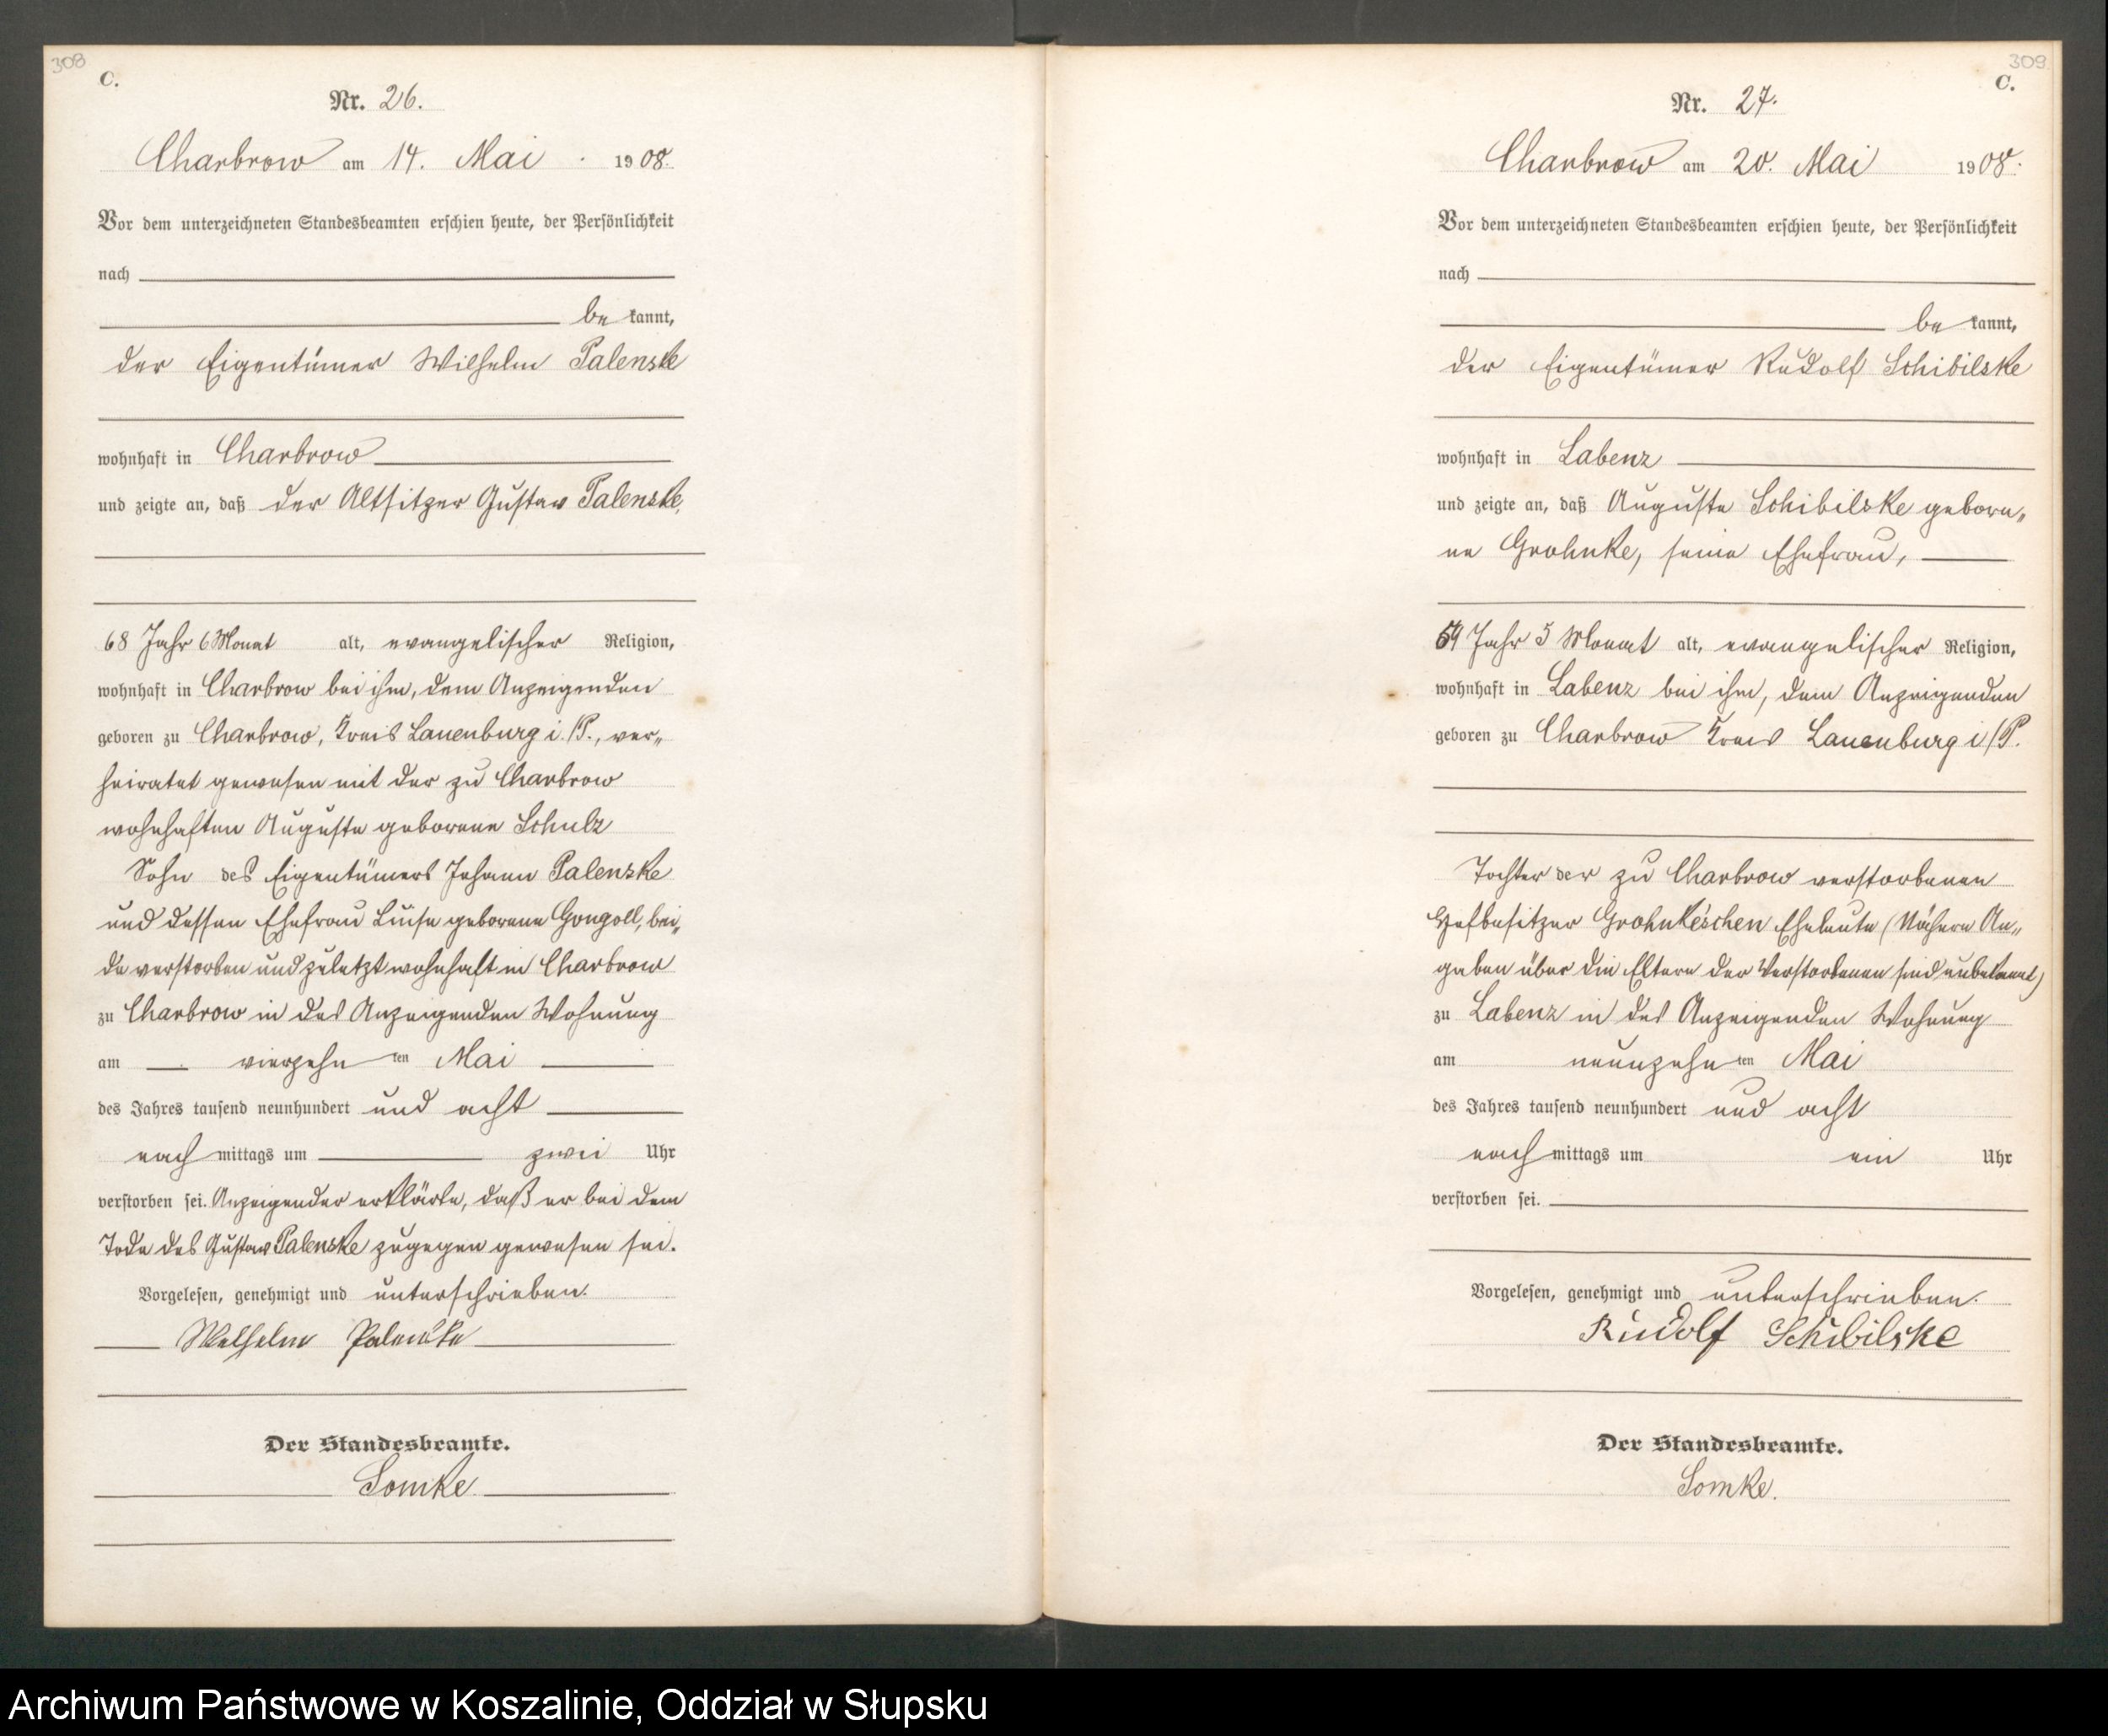 308
C.
Nr. 26.
Charbrow am 14. Mai 1908.
Vor dem unterzeichneten Standesbeamten erschien heute, der Persönlichkeit
nach
be kannt,
der Eigentümer Wilhelm Palenske
wohnhaft in Charbrow
und zeigte an, daß der Altsitzer Gustav Palenske,
68 Jahr 6 Monat alt, evangelischer Religion,
wohnhaft in Charbrow bei ihm, dem Anzeigenden
geboren zu Charbrow, Kreis Lauenburg i./P., ver„
heiratet gewesen mit der zu Charbrow
wohnhaften Auguste geborene Schulz
Sohn des Eigentümers Johann Palenske
und dessen Ehefrau Luise geborene Gongoll, bei„
de verstorben und zuletzt wohnhaft in Charbrow
zu Charbrow in des Anzeigenden Wohnung
am vierzehn ten Mai
des Jahres tausend neunhundert und acht
nach mittags um zwei Uhr
verstorben sei. Anzeigender erklärte, daß er bei dem
Tode des Gustav Palenske zugegen gewesen sei.
Vorgelesen, genehmigt und unterschrieben.
Wilhelm Palenske
Der Standesbeamte.
Somke
309
C.
Nr. 27.
Charbrow am 20. Mai 1908.
Vor dem unterzeichneten Standesbeamten erschien heute, der Persönlichkeit
nach
be kannt,
der Eigentümer Rudolf Schibilske
wohnhaft in Labenz
und zeigte an, daß Auguste Schibilske gebore„
ne Grohnke, seine Ehefrau,
Jahr 5 Monat alt, evangelischer Religion,
wohnhaft in Labenz bei ihm, dem Anzeigenden
geboren zu Charbrow Kreis Lauenburg i/P.
Tochter der zu Charbrow verstorbenen
Hofbesitzer Grohnke'schen Eheleute (Nähere An„
gaben über die Eltern der Verstorbenen sind unbekannt)
zu Labenz in des Anzeigenden Wohnung
am neunzehn ten Mai
des Jahres tausend neunhundert und acht
nach mittags um ein Uhr
verstorben sei.
Vorgelesen, genehmigt und unterschrieben.
Rudolf Schibilske
Der Standesbeamte.
Somke.
Archiwum Państwowe w Koszalinie, Oddział w Słupsku